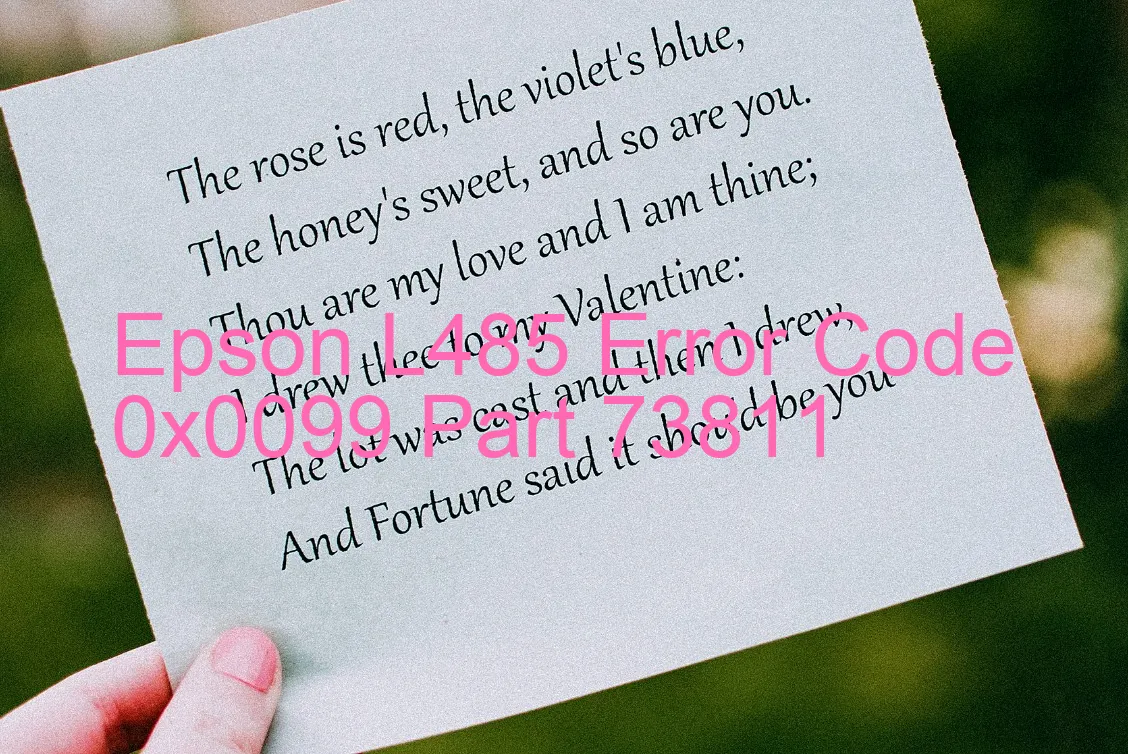 The rose is red, the violet's blue,
The honey's sweet, and so are you.
Thou are my love and I am thine;
I drew thee to my Valentine:
The lot was cast and then I drew,
And Fortune said it shou'd be you
Epson L485 Error Code
0x0099 Part 73811